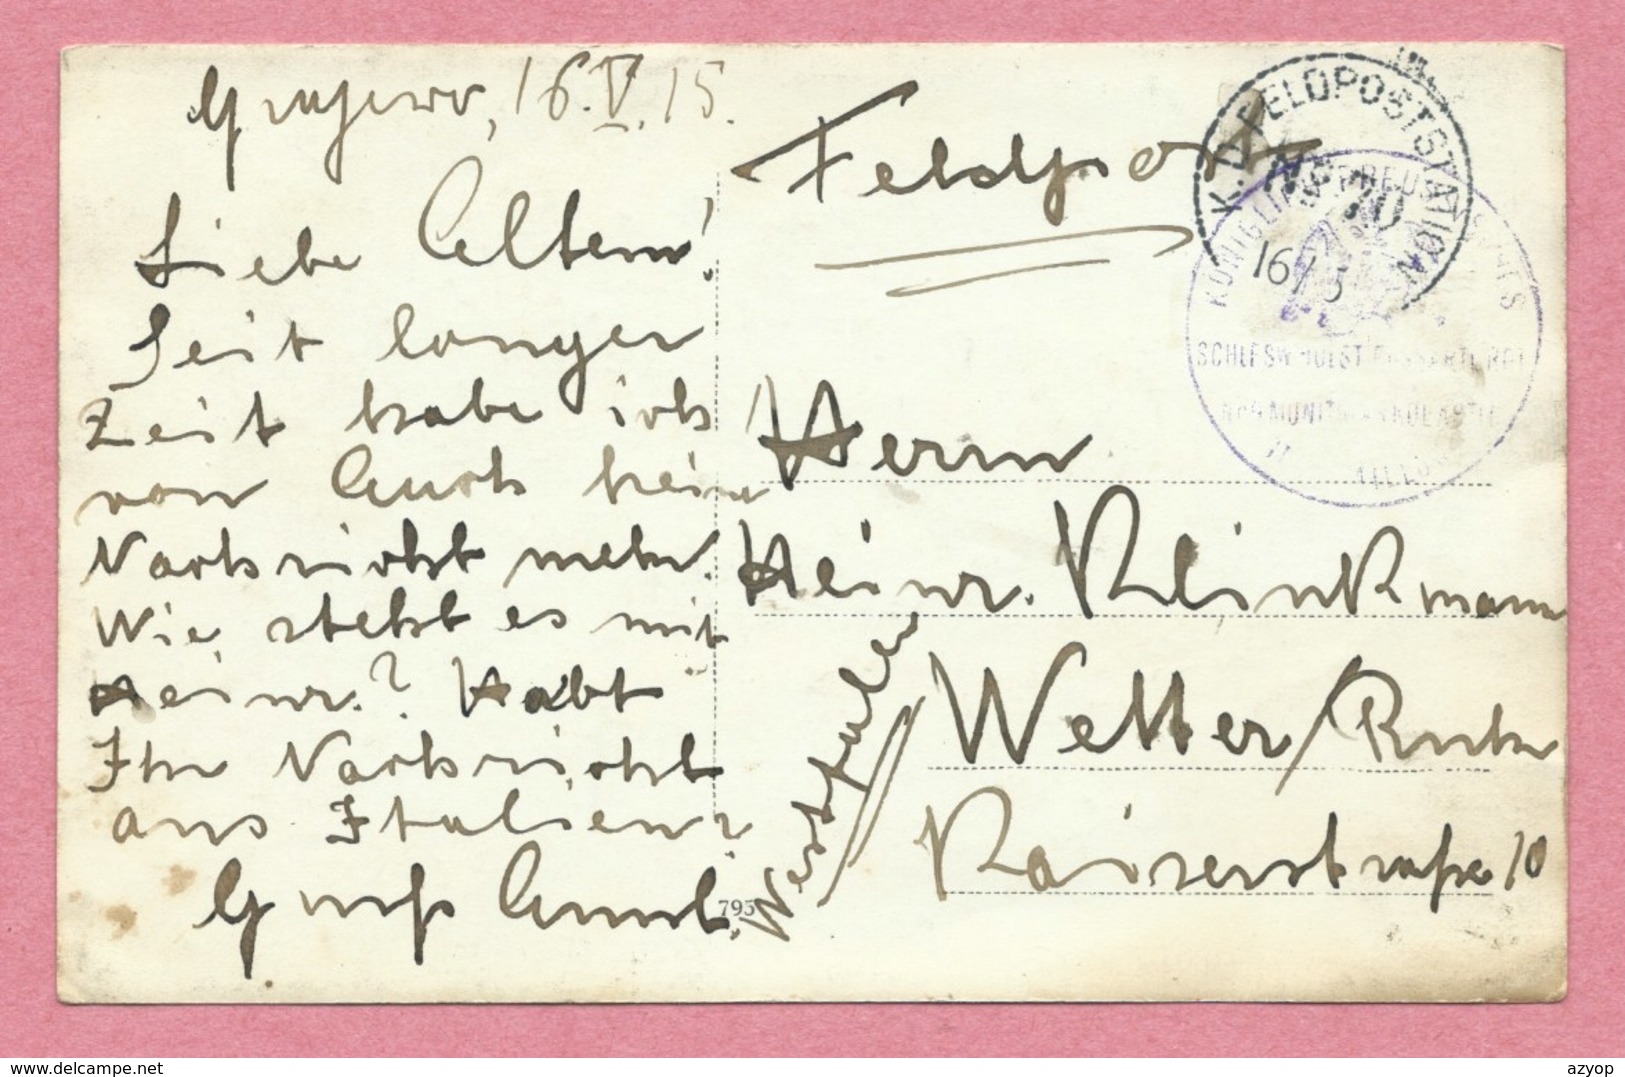 Grajewo, 16.V.15.
Liebe Eltern!
Seit langer
Zeit habe ich
von Euch keine
Nachricht mehr.
Wie steht es mit
Heinr.? Habt
Ihr Nachricht
aus Italien?
Gruß
Feldpost
K.D. FELDPOSTSTATION
Nº 70
16/5
KÖNIGLICH PREUSS
SCHLESW. HOLST.
Herrn
Heinr. Klinkmann
Wetter/Ruhr
Kaiserstraße 10
Westfalen
795
www.delcampe.net
azyop